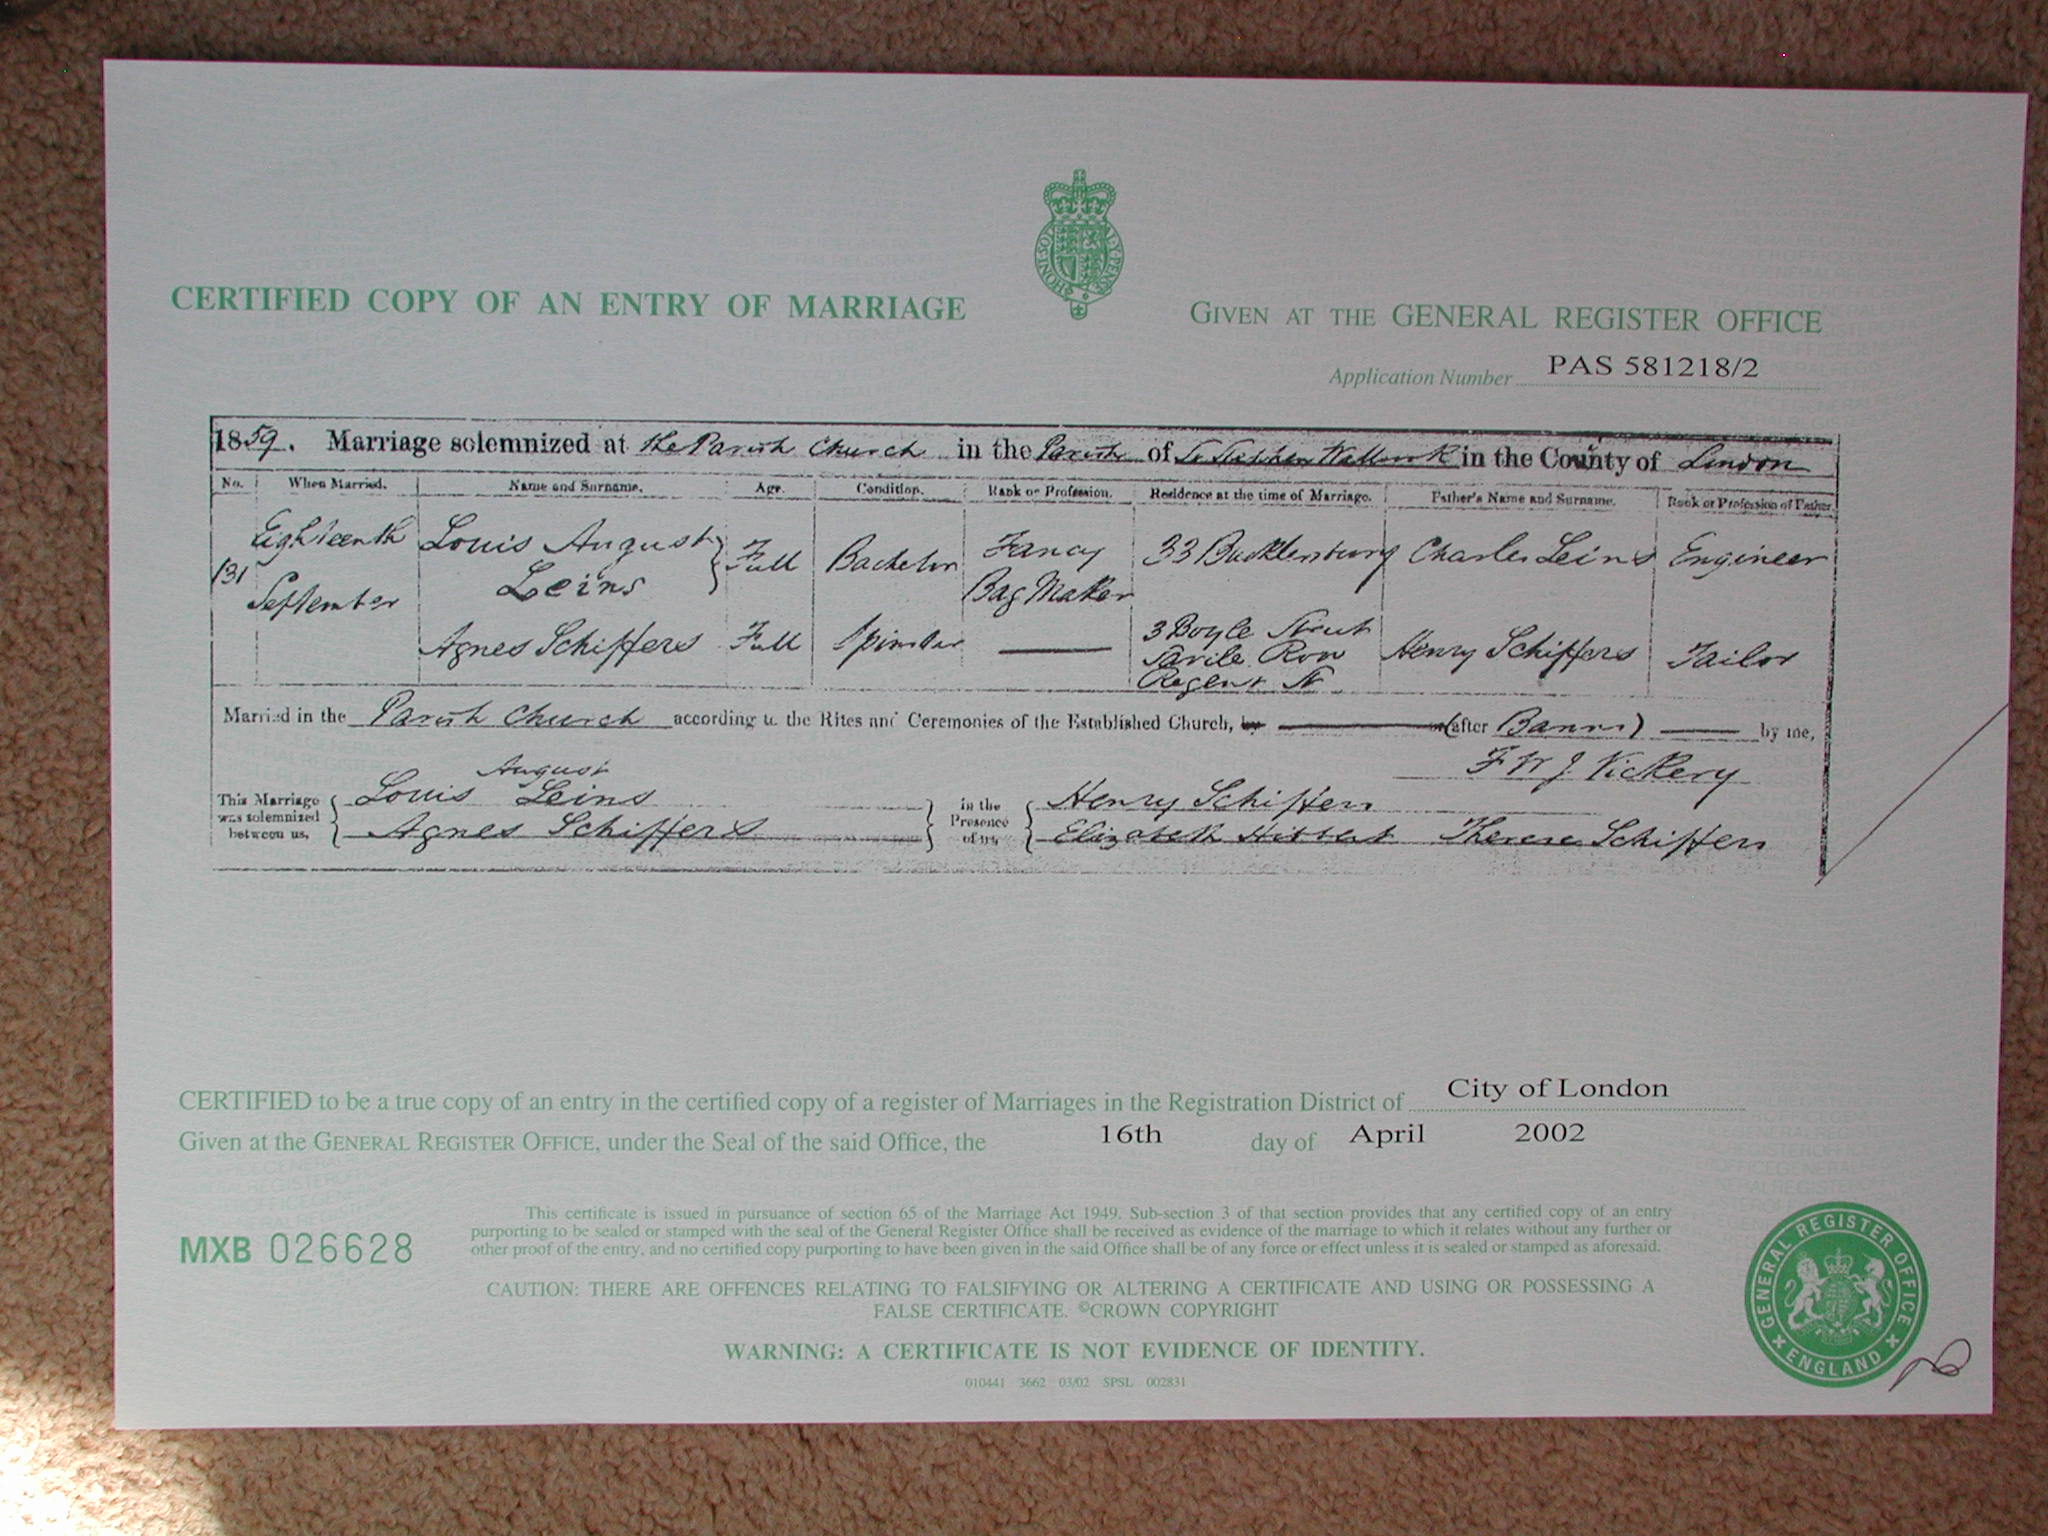 CERTIFIED COPY OF AN ENTRY OF MARRIAGE
GIVEN AT THE GENERAL REGISTER OFFICE
Application Number PAS 581218/2
1859. Marriage solemnized at the Parish Church in the Parish of St Stephen Walbrook in the County of London
No. When Married. Name and Surname. Age. Condition. Rank or Profession. Residence at the time of Marriage. Father's Name and Surname. Rank or Profession of Father.
131 Eighteenth September Louis August Leins Full Bachelor Fancy Bag Maker 33 Bucklersbury Charles Leins Engineer
Agnes Schiffers Full Spinster 3 Boyle Street Savile Row Regent St Henry Schiffers Tailor
Married in the Parish Church according to the Rites and Ceremonies of the Established Church, by (after Banns) by me,
F W J Vickery
This Marriage was solemnized between us, Louis August Leins
Agnes Schiffers
in the Presence of us, Henry Schiffers
Elizabeth Hibbert Therese Schiffers
CERTIFIED to be a true copy of an entry in the certified copy of a register of Marriages in the Registration District of City of London
Given at the GENERAL REGISTER OFFICE, under the Seal of the said Office, the 16th day of April 2002
This certificate is issued in pursuance of section 65 of the Marriage Act 1949. Sub-section 3 of that section provides that any certified copy of an entry
purporting to be sealed or stamped with the seal of the General Register Office shall be received as evidence of the marriage to which it relates without any further or
other proof of the entry, and no certified copy purporting to have been given in the said Office shall be of any force or effect unless it is sealed or stamped as aforesaid.
MXB 026628
CAUTION: THERE ARE OFFENCES RELATING TO FALSIFYING OR ALTERING A CERTIFICATE AND USING OR POSSESSING A
FALSE CERTIFICATE. ©CROWN COPYRIGHT
WARNING: A CERTIFICATE IS NOT EVIDENCE OF IDENTITY.
010441 3662 03/02 SPSL 002831
GENERAL REGISTER OFFICE
ENGLAND